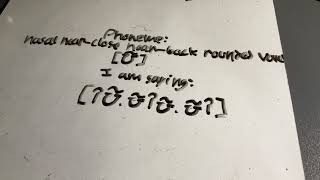 Phoneme:
nasal near-close near-back rounded vowel
[ʊ̃]
I am saying:
[ʔʊ̃.ʊ̃ʔʊ̃.ʊ̃ʔ]